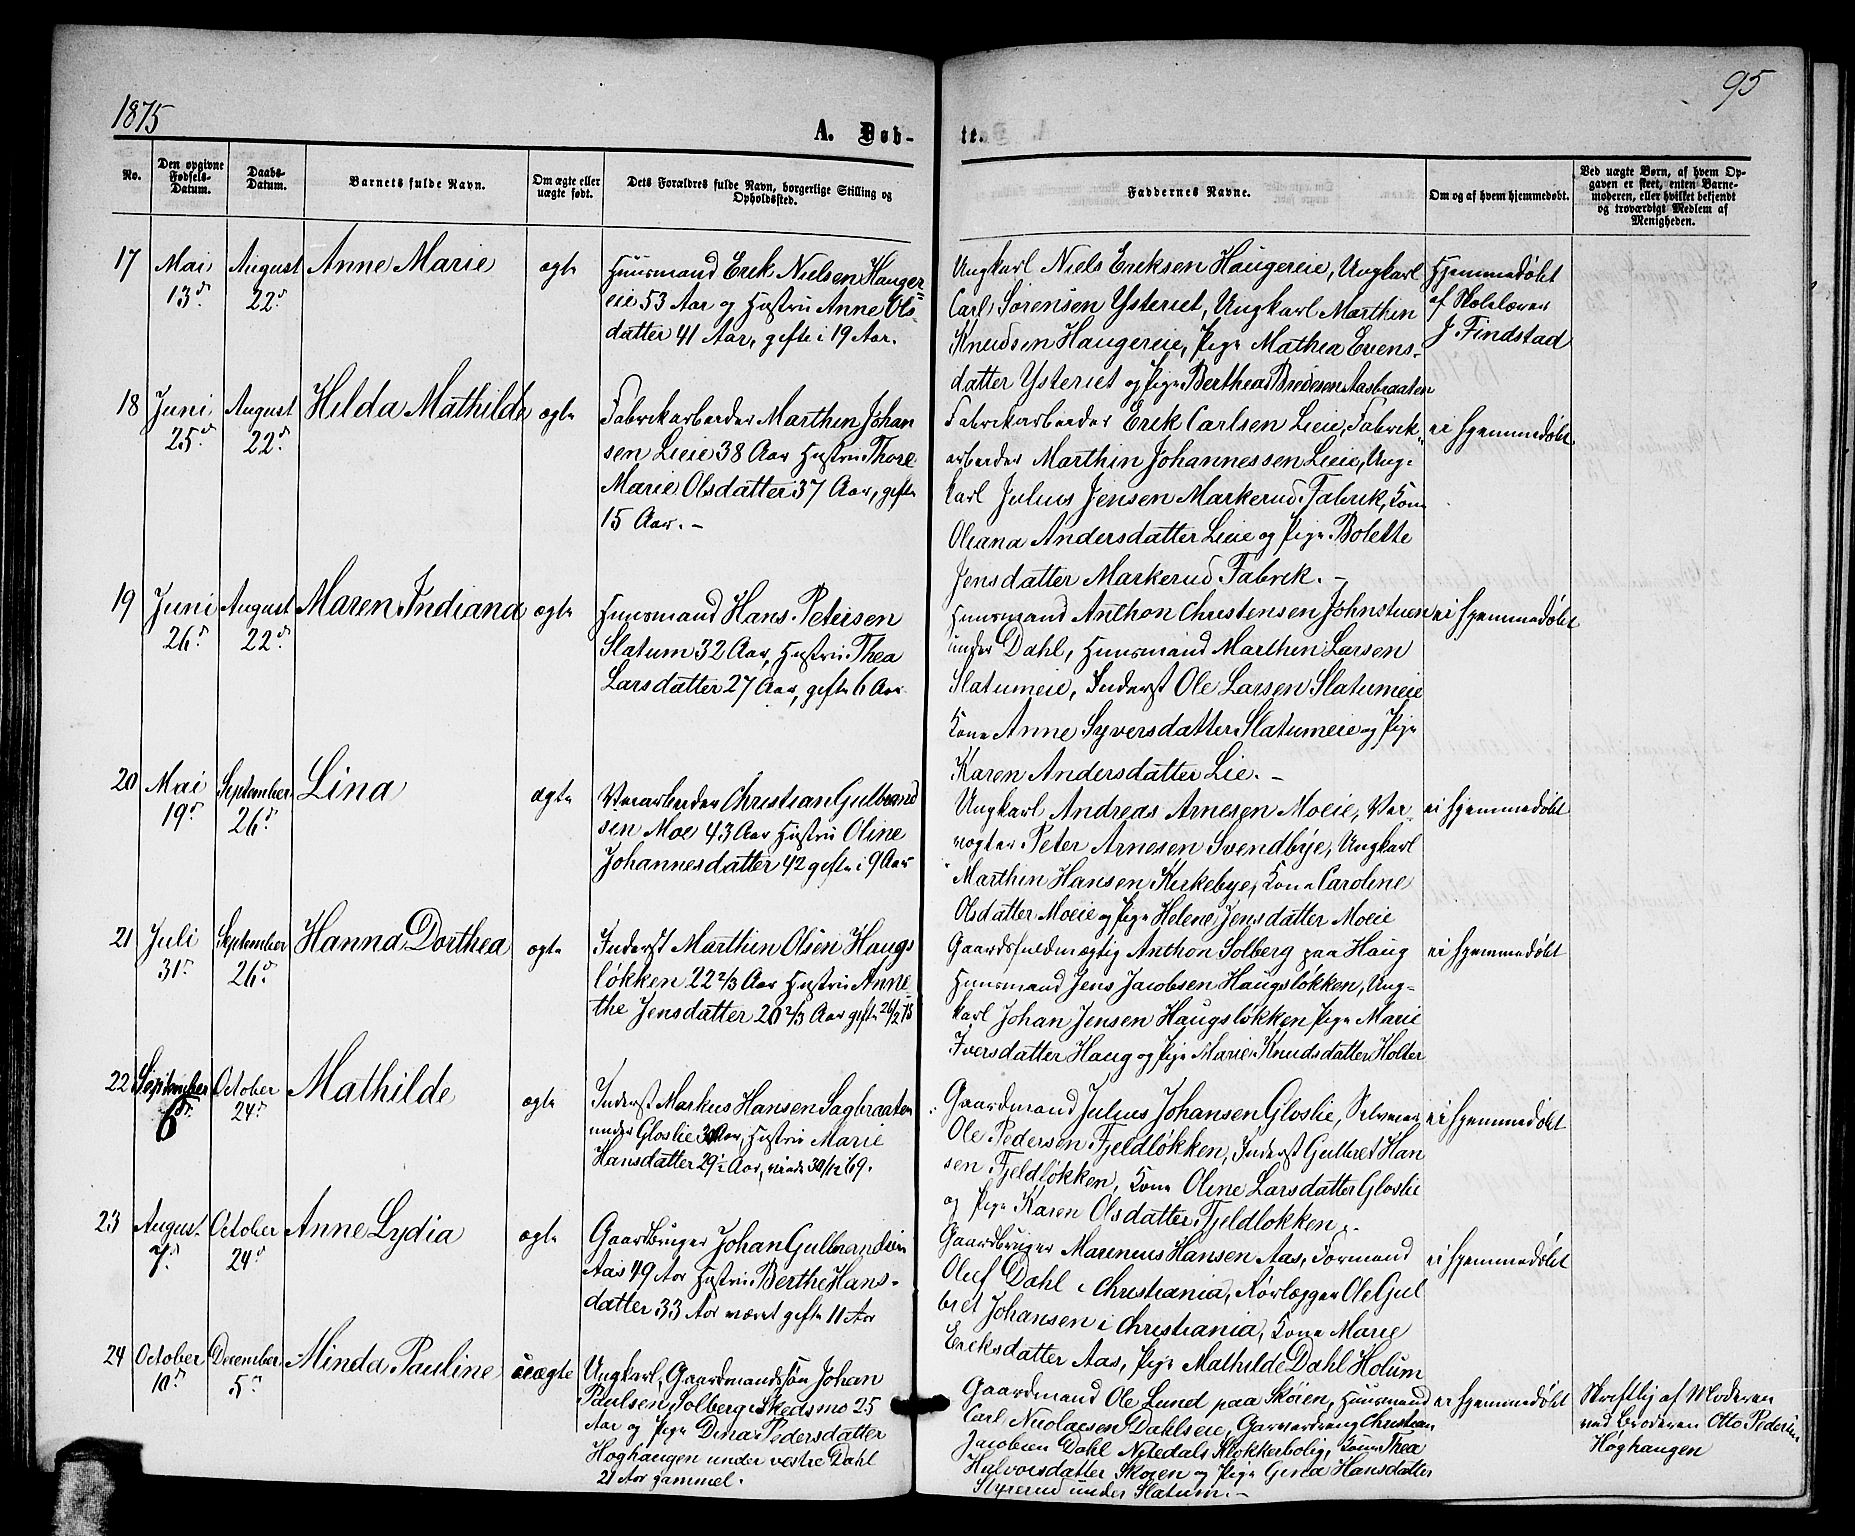 1875
95
A. Døb-
te.
No.
Den opgivne Fødsels-Datum.
Daabs-Datum.
Barnets fulde Navn.
Om ægte eller uægte født.
Dets Forældres fulde Navn, borgerlige Stilling og Opholdssted.
Faddernes Navne.
Om og af hvem hjemmedøbt.
Ved uægte Børn, af hvem Op-
gaven er skeet, enten Barne-
moderen, eller hvilket bekjendt
og troværdigt Medlem af
Menigheden.
17 Mai 13de August 22de Anne Marie ægte
Huusmand Erik Nielsen Hauger-
eie 53 Aar og Hustru Anne Ols-
datter 41 Aar, gifte i 19 Aar.
Ungkarl Niels Eriksen Haugereie, Ungkarl
Carl Sørensen Ysteriet, Ungkarl Marthin
Knudsen Haugereie, Pige Mathea Evens-
datter Ysteriet og Pige Berthea Bredesen Aasbraaten
Hjemmedøbt
af Skolelærer
J. Findstad
18 Juni 25de August 22de Hilda Mathilde ægte
Fabrikarbeider Marthin Johan
sen Lieie 38 Aar Hustru Thore
Marie Olsdatter 37 Aar, gifte
15 Aar. -
Fabrikarbeider Erik Carlsen Lieie, Fabrik-
arbeider Marthin Johannessen Lieie, Ung-
karl Julius Jensen Markerud Fabrik, Kone
Oleana Andersdatter Lieie og Pige Bolette
Jensdatter Markerud Fabrik. -
ei hjemmedøbt.
19 Juni 26de August 22de Maren Indiana ægte
Huusmand Hans Petersen
Slatum 32 Aar, Hustru Thea
Larsdatter 27 Aar, gifte 6 Aar.
Huusmand Anthon Christensen Johnstuen
under Dahl, Huusmand Marthin Larsen
Slatumeie, Inderst Ole Larsen Slatumeie
Kone Anne Syversdatter Slatumeie og Pige
Karen Andersdatter Lie. -
ei hjemmedøbt
20 Mai 19de September 26de Lina ægte
Veiarbeider Christian Gulbrand
sen Moe 43 Aar Hustru Oline
Johannesdatter 42 gifte i 9 Aar
Ungkarl Andreas Arnesen Moeie, Vei-
vogter Peter Arnesen Svendbye, Ungkarl
Marthin Hansen Kirkebye, Kone Caroline
Olsdatter Moeie og Pige Helene Jensdatter Moeie
ei hjemmedøbt
21 Juli 31te September 26de Hanna Dorthea ægte
Inderst Marthin Olsen Haugs
løkken 22 2/3 Aar Hustru Anne-
the Jensdatter 20 2/3 Aar gifte 26/2 75
Gaardsfuldmægtig Anthon Solberg paa Haug
Huusmand Jens Jacobsen Haugsløkken, Ung-
karl Johan Jensen Haugsløkken Pige Marie
Iversdatter Haug og Pige Marie Knudsdatter Holter
ei hjemmedøbt
22 September 6te October 24de Mathilde ægte
Inderst Markus Hansen Sagbraaten
under Gloslie 30 Aar, Hustru Marie
Hansdatter 29 1/2 Aar, viede 30/12 69.
Gaardmand Julius Johansen Gloslie, Selveier
Ole Pedersen Fjeldløkken, Inderst Gulbret Han
sen Fjeldløkken, Kone Oline Larsdatter Gloslie
og Pige Karen Olsdatter Fjeldløkken.-
ei hjemmedøbt
23 August 7de October 24de Anne Lydia ægte
Gaardbruger Johan Gulbrandsen
Aas 49 Aar Hustru Berthe Hans-
datter 33 Aar været gifte 11 Aar
Gaardbruger Marenius Hansen Aas, Formand
Oluf Dahl i Christiania, Rørlægger Ole Gul
bret Johansen i Christiania, Kone Marie
Eriksdatter Aas, Pige Mathilde Dahl Holum
ei hjemmedøbt
24 October 10de December 5te Minda Pauline uægte
Ungkarl, Gaardmandssøn Johan
Paulsen Solberg i Skedsmo 25
Aar og Pige Dina Pedersdatter
Høghaugen under vestre Dahl
21 Aar gammel.
Gaardmand Ole Lund paa Skøien, Huusmand
Carl Nicolaesen Dahlseie, Garverdreng Christian
Jacobsen Dahl Nitedals Klokkerbolig, Kone Thea
Halvorsdatter Skøien og Pige Gina Hansdatter
Styrerud under Slatum. -
ei hjemmedøbt
Skriftlig af Moderen
ved Broderen Otto Pedersen
Høghaugen